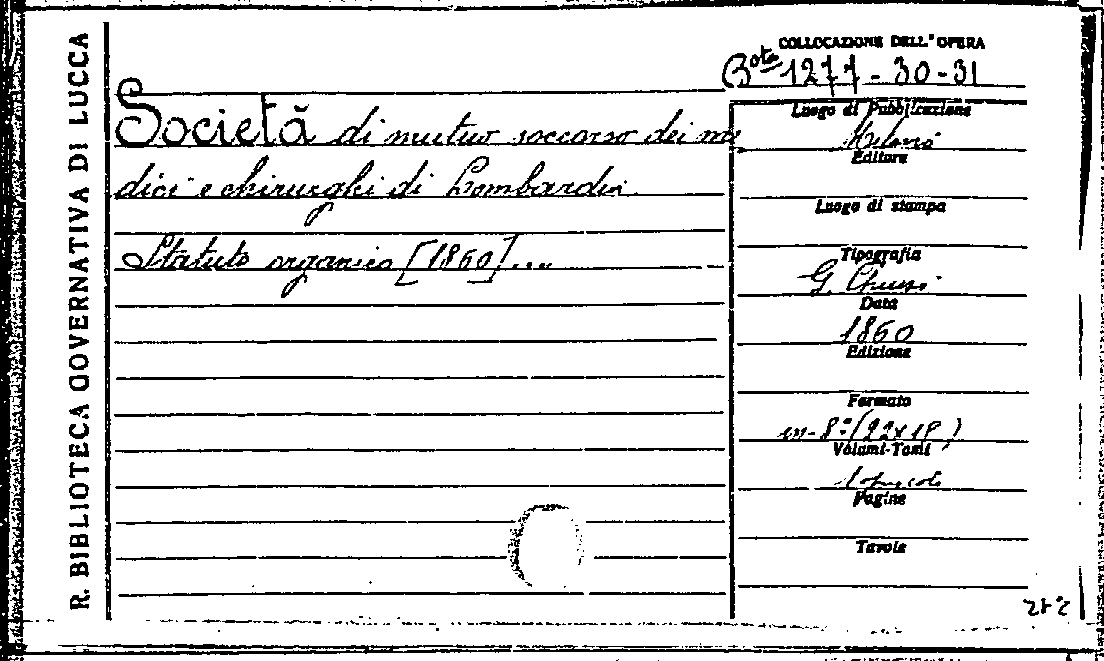 R. BIBLIOTECA GOVERNATIVA DI LUCCA
Società di mutuo soccorso dei me
dici e chirurghi di Lombardia.
Statuto organico [1860]....
COLLOCAZIONE DELL'OPERA
Bta 1277-30-31
Luogo di Pubblicazione
Milano
Editore
Luogo di stampa
Tipografia
G. Chiusi
Data
1860
Edizione
Formato
in-8° (22x1
Volumi-Tomi
1 opuscolo
Pagine
Tavole